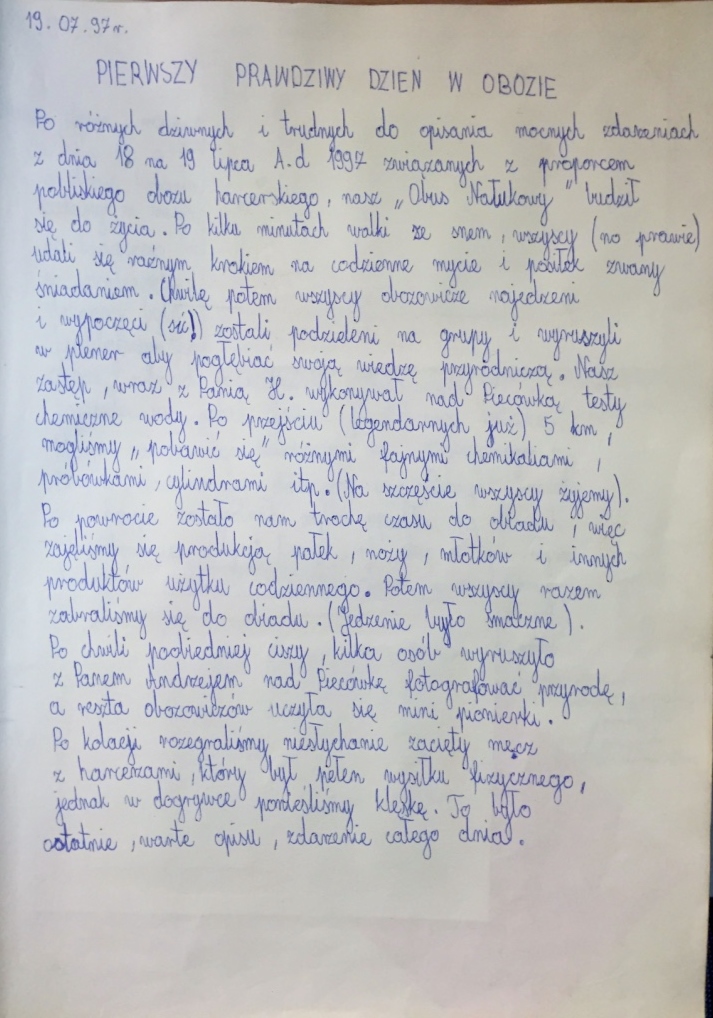 19.07.97r.
PIERWSZY PRAWDZIWY DZIEŃ W OBOZIE
Po różnych dziwnych i trudnych do opisania nocnych zdarzeniach
z dnia 18 na 19 lipca A.d 1997 związanych z proporcem
pobliskiego obozu harcerskiego, nasz „Obus Naukowy" budził
się do życia. Po kilku minutach walki ze snem, wszyscy (no prawie)
udali się raźnym krokiem na codzienne mycie i posiłek zwany
śniadaniem. Chwilę potem wszyscy obozowicze najedzeni
i wypoczęci (sić!) zostali podzieleni na grupy i wyruszyli
w plener aby pogłębiać swoją wiedzę przyrodniczą. Nasz
zastęp, wraz z Panią H. wykonywał nad Piecówką testy
chemiczne wody. Po przejściu (legendarnych już) 5 km,
mogliśmy „pobawić się" różnymi fajnymi chemikaliami,
próbówkami, cylindrami itp. (Na szczęście wszyscy żyjemy).
Po powrocie zostało nam trochę czasu do obiadu, więc
zajęliśmy się produkcją pałek, noży, młotków i innych
produktów użytku codziennego. Potem wszyscy razem
zabraliśmy się do obiadu. (Jedzenie było smaczne).
Po chwili poobiedniej ciszy, kilka osób wyruszyło
z Panem Andrzejem nad Piecówkę fotografować przyrodę,
a reszta obozowiczów uczyła się mini pionierki.
Po kolacji rozegraliśmy niesłychanie zacięty mecz
z harcerzami, który był pełen wysiłku fizycznego,
jednak w dogrywce ponieśliśmy klęskę. To było
ostatnie, warte opisu, zdarzenie całego dnia.